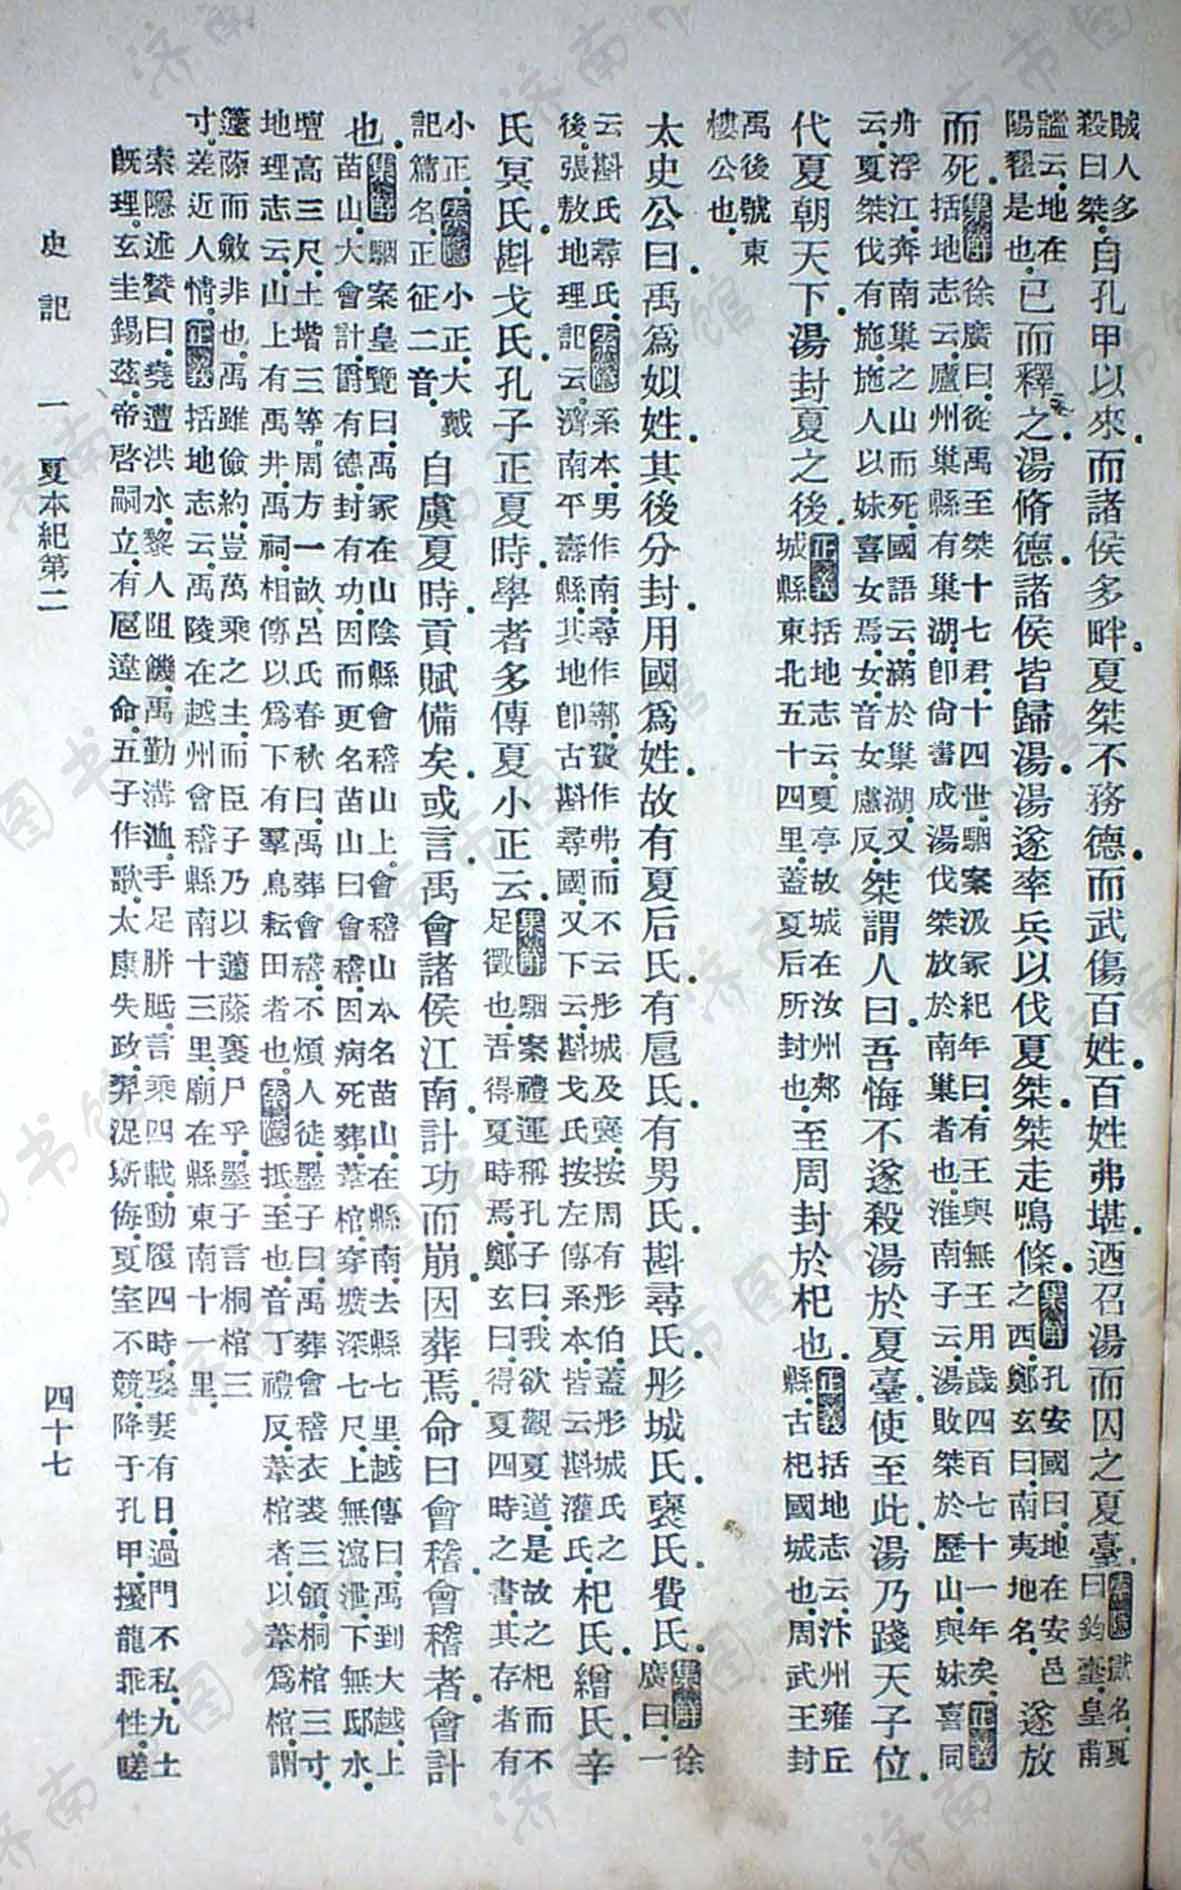 賊人多殺曰桀.自孔甲以來.而諸侯多畔.夏桀不務德.而武傷百姓.百姓弗堪.迺召湯而囚之夏臺.索隱獄名.夏曰鈞臺.皇甫
謐云.地在陽翟是也.已而釋之.湯脩德.諸侯皆歸湯.湯遂率兵以伐夏桀.桀走鳴條.集解孔安國曰.地在安邑之西.鄭玄曰.南夷地名.遂放
而死.集解徐廣曰.從禹至桀十七君.十四世.駰案汲冢紀年曰.有王與無王用歲四百七十一年矣.正義括地志云.廬州巢縣有巢湖.卽尙書成湯伐桀放於南巢者也.淮南子云.湯敗桀於歷山.與妹喜同
舟浮江.奔南巢之山而死.國語云.滿於巢湖.又云.夏桀伐有施.施人以妹喜女焉.女.音女慮反.桀謂人曰.吾悔不遂殺湯於夏臺.使至此.湯乃踐天子位.
代夏朝天下.湯封夏之後.正義括地志云.夏亭故城在汝州郟城縣東北五十四里.蓋夏后所封也.至周封於杞也.正義括地志云.汴州雍丘縣.古杞國城也.周武王封
禹後號東樓公也.
太史公曰.禹爲姒姓.其後分封.用國爲姓.故有夏后氏.有扈氏.有男氏.斟尋氏.彤城氏.襃氏.費氏.集解徐廣曰.一
云斟氏.尋氏.索隱系本.男作南.尋作鄩.費作弗.而不云彤城及襃.按周有彤伯.蓋彤城氏之後.張敖地理記云.濟南平壽縣.其地卽古斟尋國.又下云.斟戈氏.按左傳系本.皆云斟灌氏.杞氏.繒氏.辛
氏.冥氏.斟戈氏.孔子正夏時.學者多傳夏小正云.集解駰案禮運稱孔子曰.我欲觀夏道.是故之杞而不足徵也.吾得夏時焉.鄭玄曰.得夏四時之書.其存者有
小正.索隱小正.大戴記篇名.正征二音.自虞夏時.貢賦備矣.或言.禹會諸侯江南.計功而崩.因葬焉.命曰會稽.會稽者.會計
也.集解駰案皇覽曰.禹冢在山陰縣會稽山上.會稽山本名苗山.在縣南.去縣七里.越傳曰.禹到大越.上苗山.大會計.爵有德.封有功.因而更名苗山曰會稽.因病死葬.葦棺.穿壙深七尺.上無瀉泄.下無邸水.
壇高三尺.土堦三等.周方一畝.呂氏春秋曰.禹葬會稽.不煩人徒.墨子曰.禹葬會稽.衣裘三領.桐棺三寸.地理志云.山上有禹井.禹祠.相傳以爲下有羣鳥耘田者也.索隱抵.至也.音丁禮反.葦棺者.以葦爲棺.謂
籧蒢而斂非也.禹雖儉約.豈萬乘之主.而臣子乃以籧蒢裹尸乎.墨子言桐棺三寸.差近人情.正義括地志云.禹陵在越州會稽縣南十三里.廟在縣東南十一里.
索隱述贊曰.堯遭洪水.黎人阻饑.禹勤溝洫.手足胼胝.言乘四載.動履四時.娶妻有日.過門不私.九土旣理.玄圭錫茲.帝啓嗣立.有扈違命.五子作歌.太康失政.羿浞斯侮.夏室不競.降于孔甲.擾龍乖性.嗟
史記 一 夏本紀第二 四十七
济南市图书馆